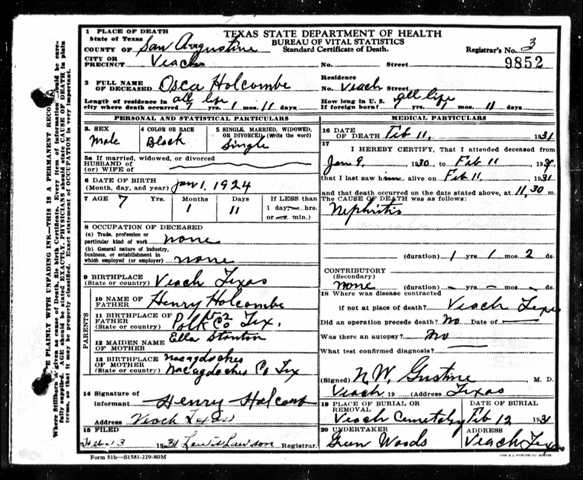 1 PLACE OF DEATH
State of Texas
TEXAS STATE DEPARTMENT OF HEALTH
BUREAU OF VITAL STATISTICS
Standard Certificate of Death.
COUNTY OF San Augustine
Registrar's No. 3
CITY OR
PRECINCT Veach No. Street
9852
2 FULL NAME
OF DECEASED Osca Holcombe
Residence
No. Veach Street
Length of residence in all life
city where death occurred 7 yrs. 1 mos. 11 days
How long in U. S. all life
if foreign born? yrs. mos. 11 days
PERSONAL AND STATISTICAL PARTICULARS
3. SEX
Male
4 COLOR OR RACE
Black
5 SINGLE, MARRIED, WIDOWED,
OR DIVORCED (Write the word)
Single
5a If married, widowed, or divorced
HUSBAND OF
(or) WIFE OF
6 DATE OF BIRTH
(Month, day, and year) Jan 1, 1924
7 AGE 7 Yrs. Months 1 Days 11
If LESS than
1 day hrs.
or min.
8 OCCUPATION OF DECEASED
(a) Trade, profession or
particular kind of work none
(b) General nature of industry,
business, or establishment in
which employed (or employer) none
9 BIRTHPLACE
(State or country) Veach Texas
PARENTS
10 NAME OF
FATHER Henry Holcombe
11 BIRTHPLACE OF
FATHER
(State or country) Polk Co Tex.
12 MAIDEN NAME
OF MOTHER Ella Stanton
13 BIRTHPLACE
OF MOTHER
(State or country) Nacogdoches
Nacogdoches Co Tex
14 Signature of
Informant Henry Holcomb
Address Veach Texas
15 FILED
1931 Lewis Lawson Registrar.
Form 51b—S1581-229-80M
MEDICAL PARTICULARS
16 DATE OF
DEATH Feb 11, 1931
17
I HEREBY CERTIFY, That I attended deceased from
Jan 9, 1930, to Feb 11 1931
that I last saw him alive on Feb 11, 1931
and that death occurred on the date stated above, at 11,30 m.
The CAUSE OF DEATH was as follows:
Nephritis
(duration) 1 yrs 1 mos 2 ds.
CONTRIBUTORY
(Secondary)
none (duration) yrs mos ds.
18 Where was disease contracted
if not at place of death? Veach Texas
Did an operation precede death? No Date of
Was there an autopsy? No
What test confirmed diagnosis?
(Signed) N.W. M. D.
Veach 19 (Address) Texas
19 PLACE OF BURIAL OR
REMOVAL
Veach Cemetery
DATE OF BURIAL
Feb 12 1931
20 UNDERTAKER
Woods
ADDRESS
Veach Texas